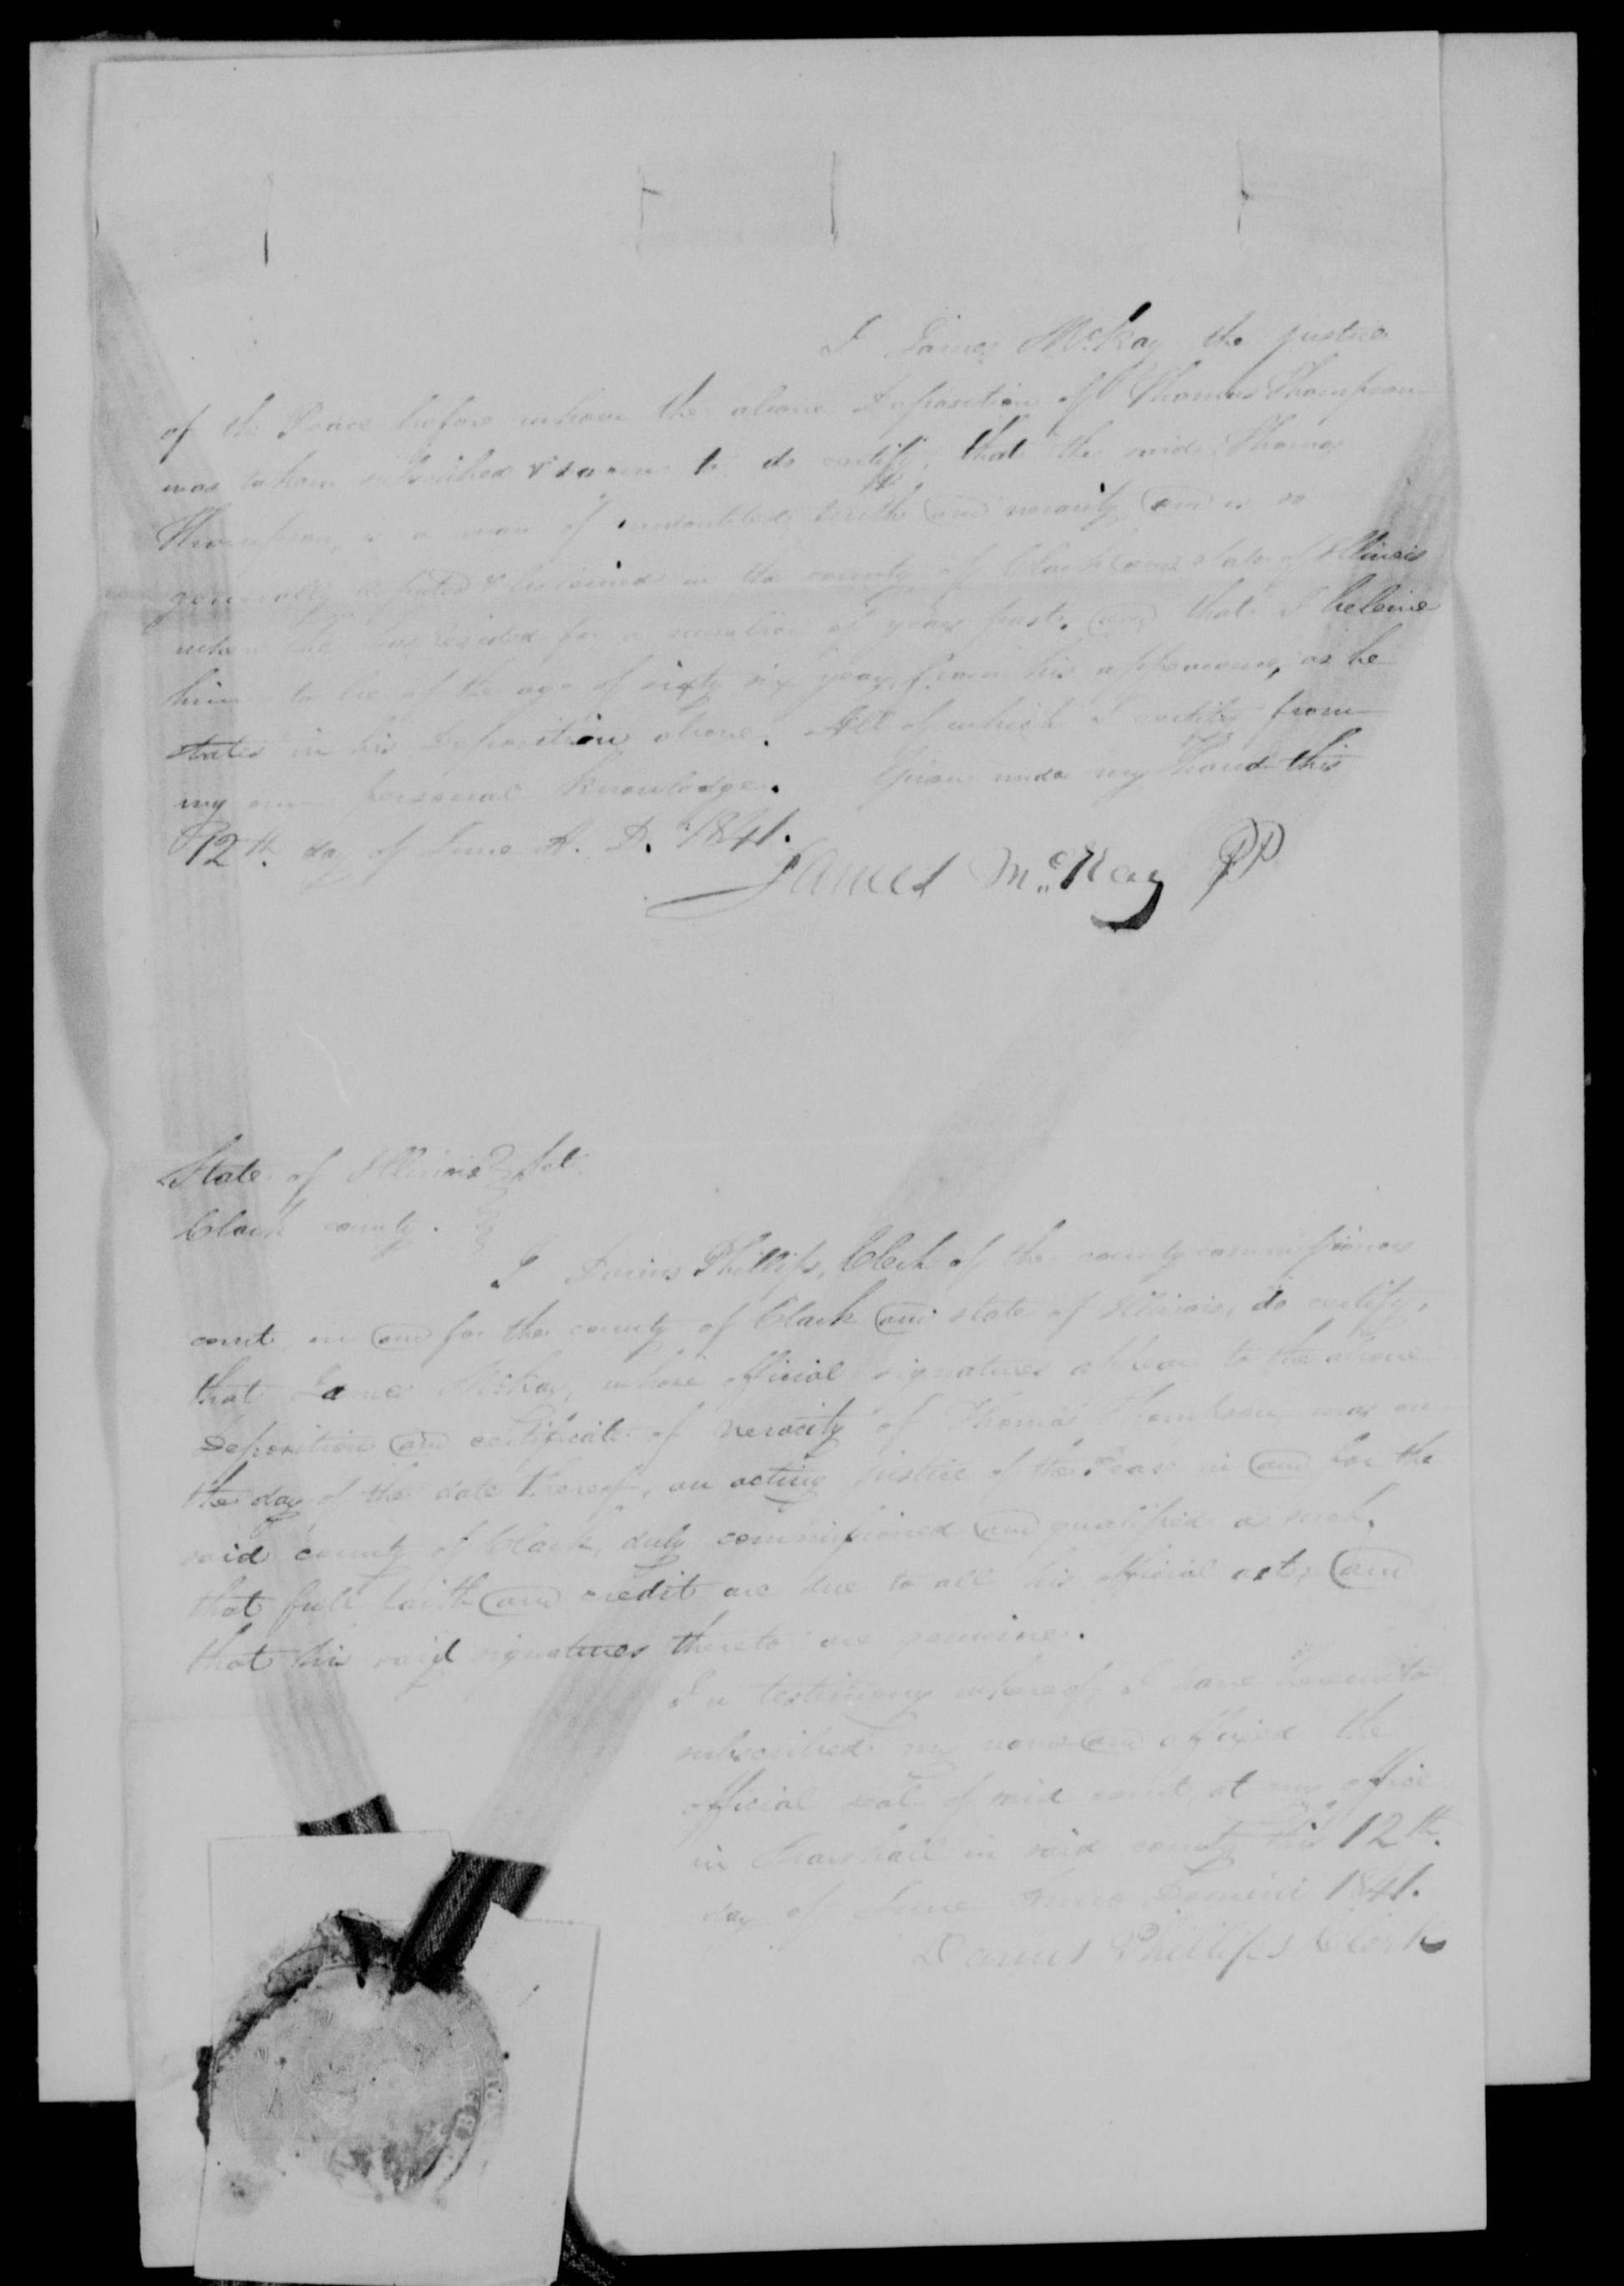 I James McKay the justice
of the Peace before whom the above Deposition of Thomas Thompson
was taken subscribed & sworn to do certify, that the said Thomas
Thompson, is a man of undoubted truth and veracity and is so
generally reputed & believed in the county of Clark and state of Illinois
where he has resided for a number of years past. and that I beleive
him to be of the age of sixty six years, from his appearance, as he
states in his Deposition above. All of which I certify from
my own personal knowledge. Given under my Hand this
12th. day of June A. D. 1841.
James McKay JP
State of Illinois } Sct.
Clark county. }
I Darius Phillips, Clerk of the county commissioners
court, in and for the county of Clark and state of Illinois, do certify,
that James McKay, whose official signatures appear to the above
Deposition and certificate of veracity of Thomas Thompson was on
the day of the date thereof, an acting justice of the Peace in and for the
said county of Clark, duly commissioned and qualified as such.
that full faith and credit are due to all his official acts, and
that his said signatures thereto are genuine.
In testimony whereof, I have hereunto
subscribed my name and affixed the
official seal of said court, at my office
in Marshall in said county this 12th.
day of June Anno Domini 1841.
Darius Phillips Clerk